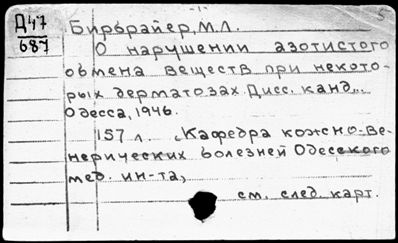 Д47
687
Бирбрайер, М.Л.
О нарушении азотистого
обмена веществ при некото-
рых дерматозах. Дисс. канд...
Одесса, 1946.
157 л. (Кафедра кожно-ве-
нерических болезней Одесского
мед. ин-та)
см. след. карт.